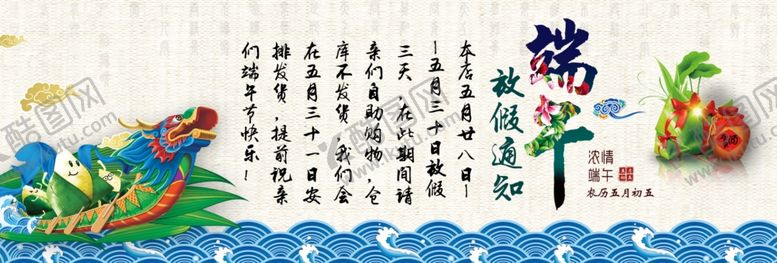 端午
放假通知
本店五月廿八日-
-五月三十日放假
三天,在此期间请
亲们自助购物,仓
库不发货,我们会
在五月三十一日安
排发货,提前祝亲
们端午节快乐!
浓情
端午
农历五月初五
酒
酷图网